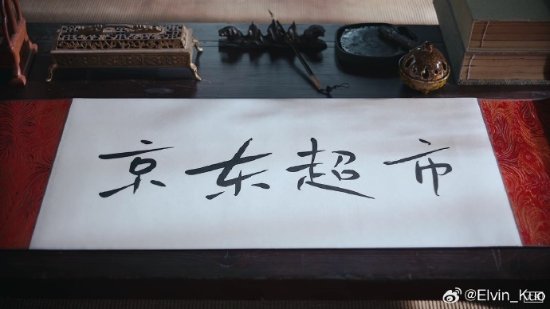 京东超市
@Elvin_Kuo